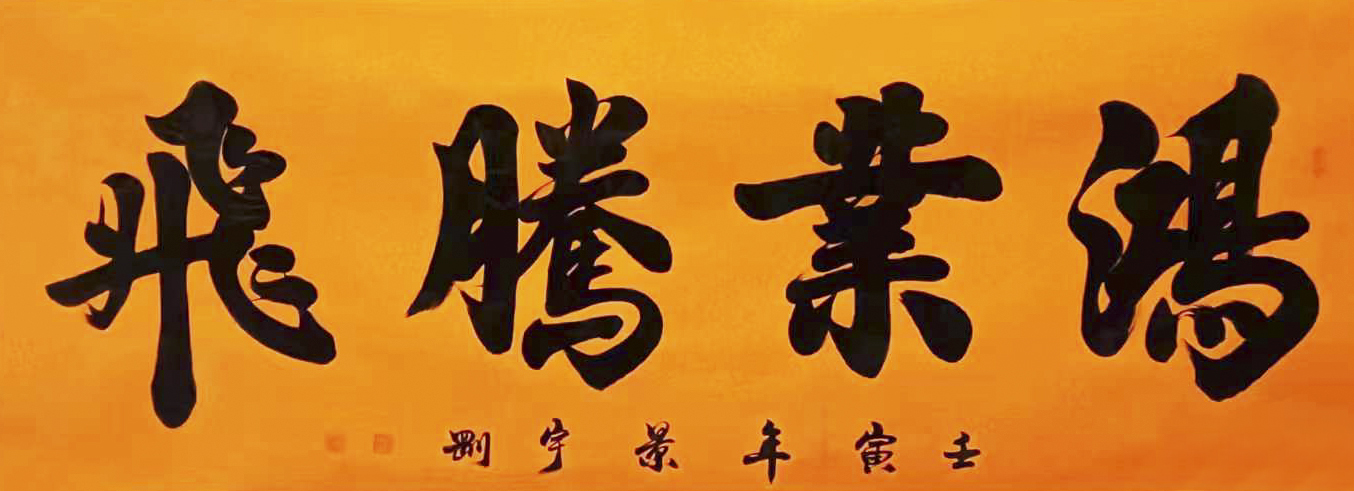 鴻業騰飛
壬寅年景宇剛